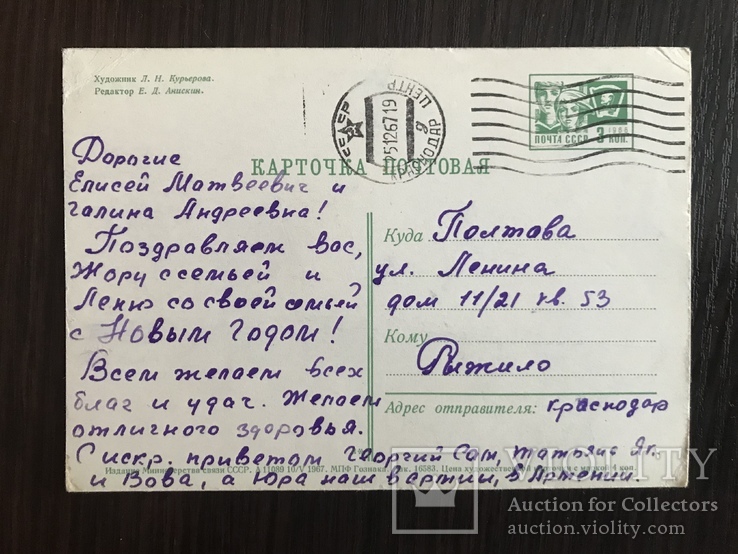 Художник Л. Н. Курьерова.
Редактор Е. Д. Анискин.
СССР
КРАСНОДАР
ЦЕНТР
25126719
ПОЧТА СССР
1966
3 коп.
КАРТОЧКА ПОЧТОВАЯ
Дорогие
Елисей Матвеевич и
Галина Андреевна!
Поздравляем вас,
Жору с семьей и
Леню со своей семьей
с Новым Годом!
Всем желаем всех
благ и удач. Желаем
отличного здоровья.
С искр. приветом Гаоргий Сам, Татьяна Як.
и Вова, а Юра наш в артии, в Армении.
Куда Полтава
ул. Ленина
дом 11/21 кв. 53
Кому
Рыжило
Адрес отправителя: Краснодар
Издание Министерства связи СССР. А 11089 10/V 1967. МПФ Гознака. Зак. 16583. Цена художественной с маркой 4 коп.
VIOLITY
Auction for Collectors
auction.violity.com